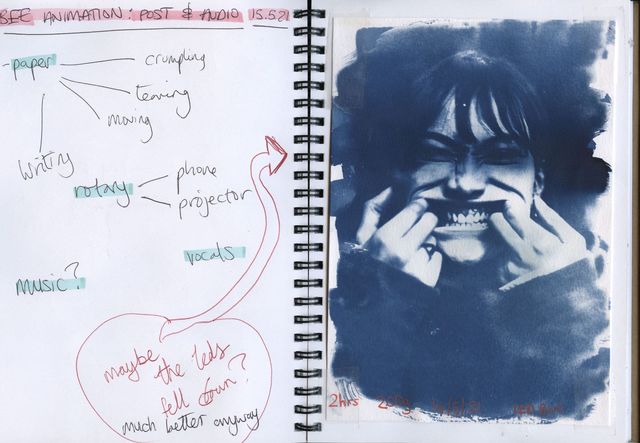 BEE ANIMATION: POST & AUDIO 15.5.21
- paper
crumpling
tearing
moving
writing
rotary
phone
projector
vocals
music?
maybe
the leds
fell down?
much better anyway
2hrs